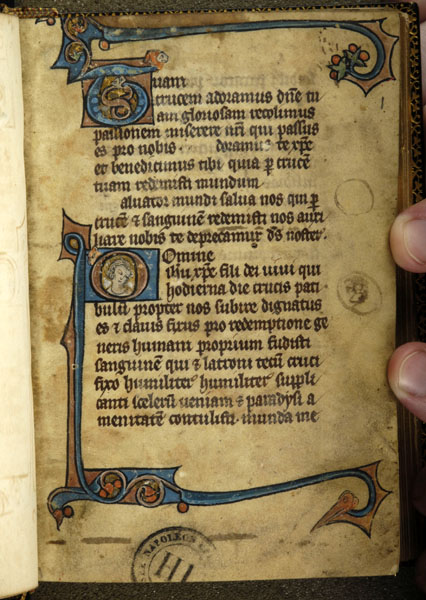 Tuam
crucem adoramus dn̄e tu
am gloriosam recolimus
passionem miserere nr̄i qui passus
es pro nobis. Adoramus te xp̄e
et benedicimus tibi quia ꝑ crucē
tuam redemisti mundum
Saluator mundi salua nos qui ꝑ
crucē & sanguinē redemisti nos auxi
liare nobis te deprecamur ds̄ noster.
Domine
ihū xp̄e fili dei uiui qui
hodierna die crucis pati
bulū propter nos subire dignatus
es & clauis fixus pro redemptione ge
neris humani proprium fudisti
sanguinē qui & latroni tecū cruci
fixo humiliter humiliter suppli
canti scelerū ueniam & paradysi a
menitatē contulisti. munda me
1
NAPOLEON
III